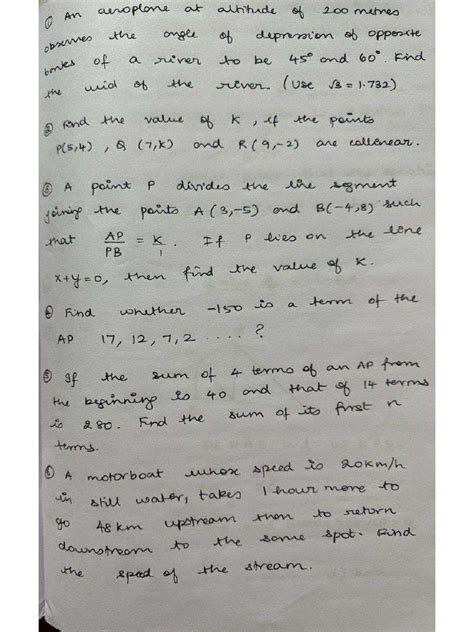 ① An aeroplane at altitude of 200 metres
observes the angle of depression of opposite
banks of a river to be 45° and 60°. Find
the wid of the river. (Use √3 = 1.732)
② Find the value of K, if the points
P(5,4), Q (7,K) and R(9,-2) are collenear.
③ A point P divides the line segment
joining the points A(3,-5) and B(-4,8) such
that AP/PB = K/1. If P lies on the line
x+y=0, then find the value of K.
④ Find whether -150 is a term of the
AP 17, 12, 7, 2 .... ?
⑤ If the sum of 4 terms of an AP from
the beginning is 40 and that of 14 terms
is 280. Find the sum of its first n
terms.
A motorboat whose speed is 20km/h
in still water, takes 1 hour more to
go 48 km upstream than to return
downstream to the same spot. Find
the speed of the stream.